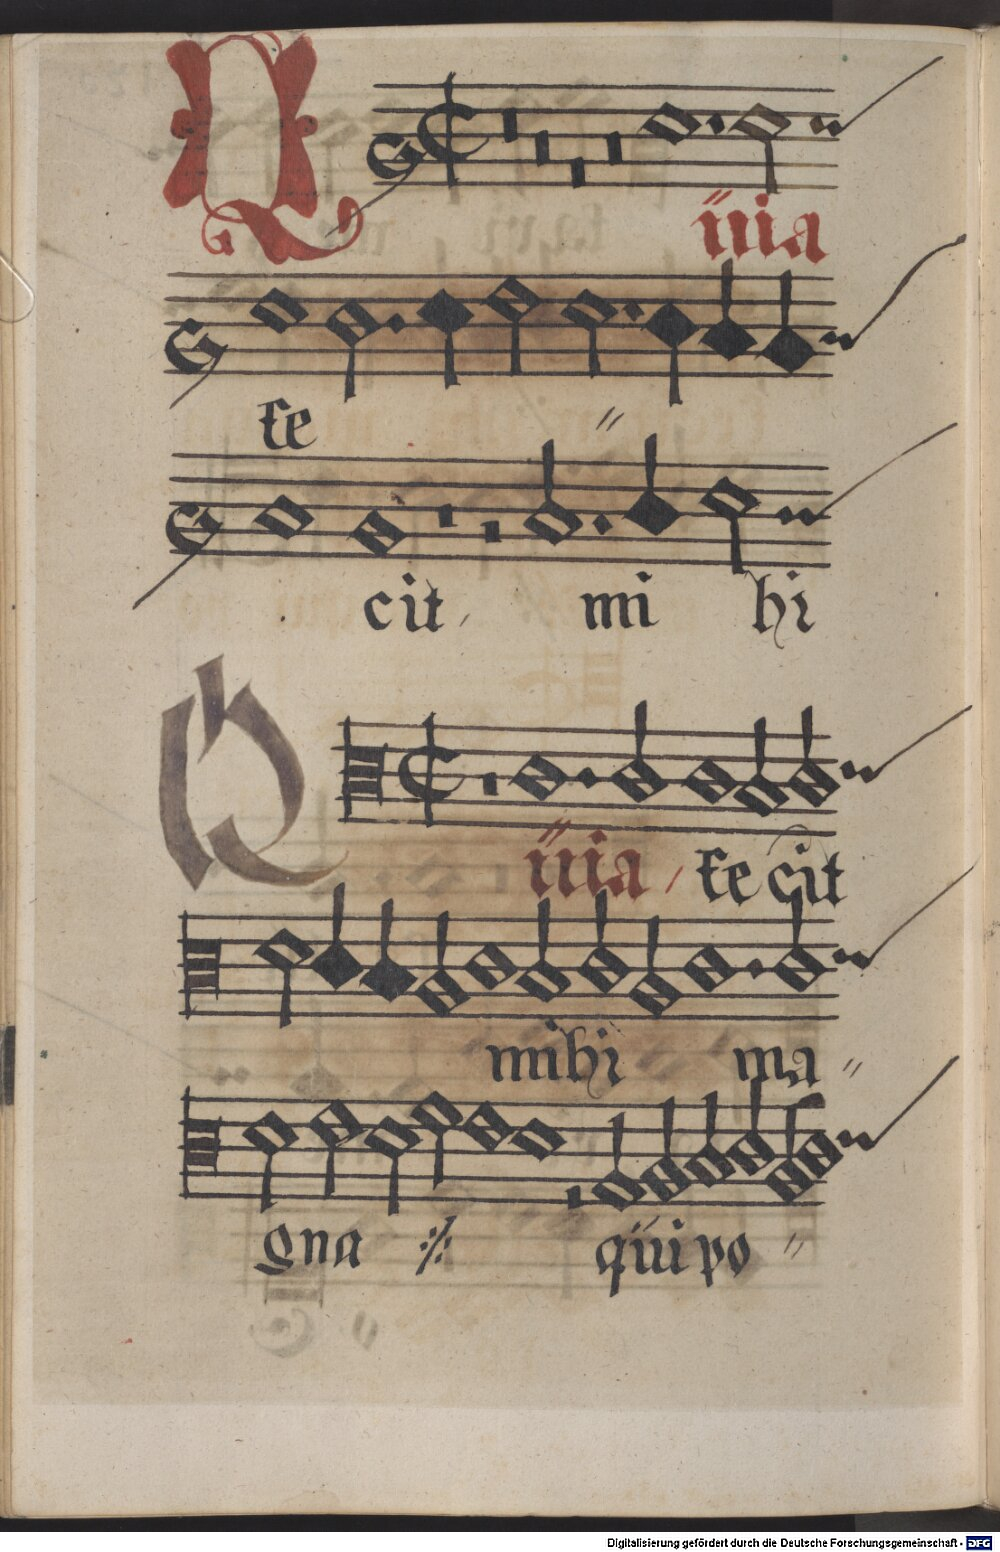 Quia
fe
cit mi hi
Quia fecit
mihi ma
gna qui po
Digitalisierung gefördert durch die Deutsche Forschungsgemeinschaft - DFG